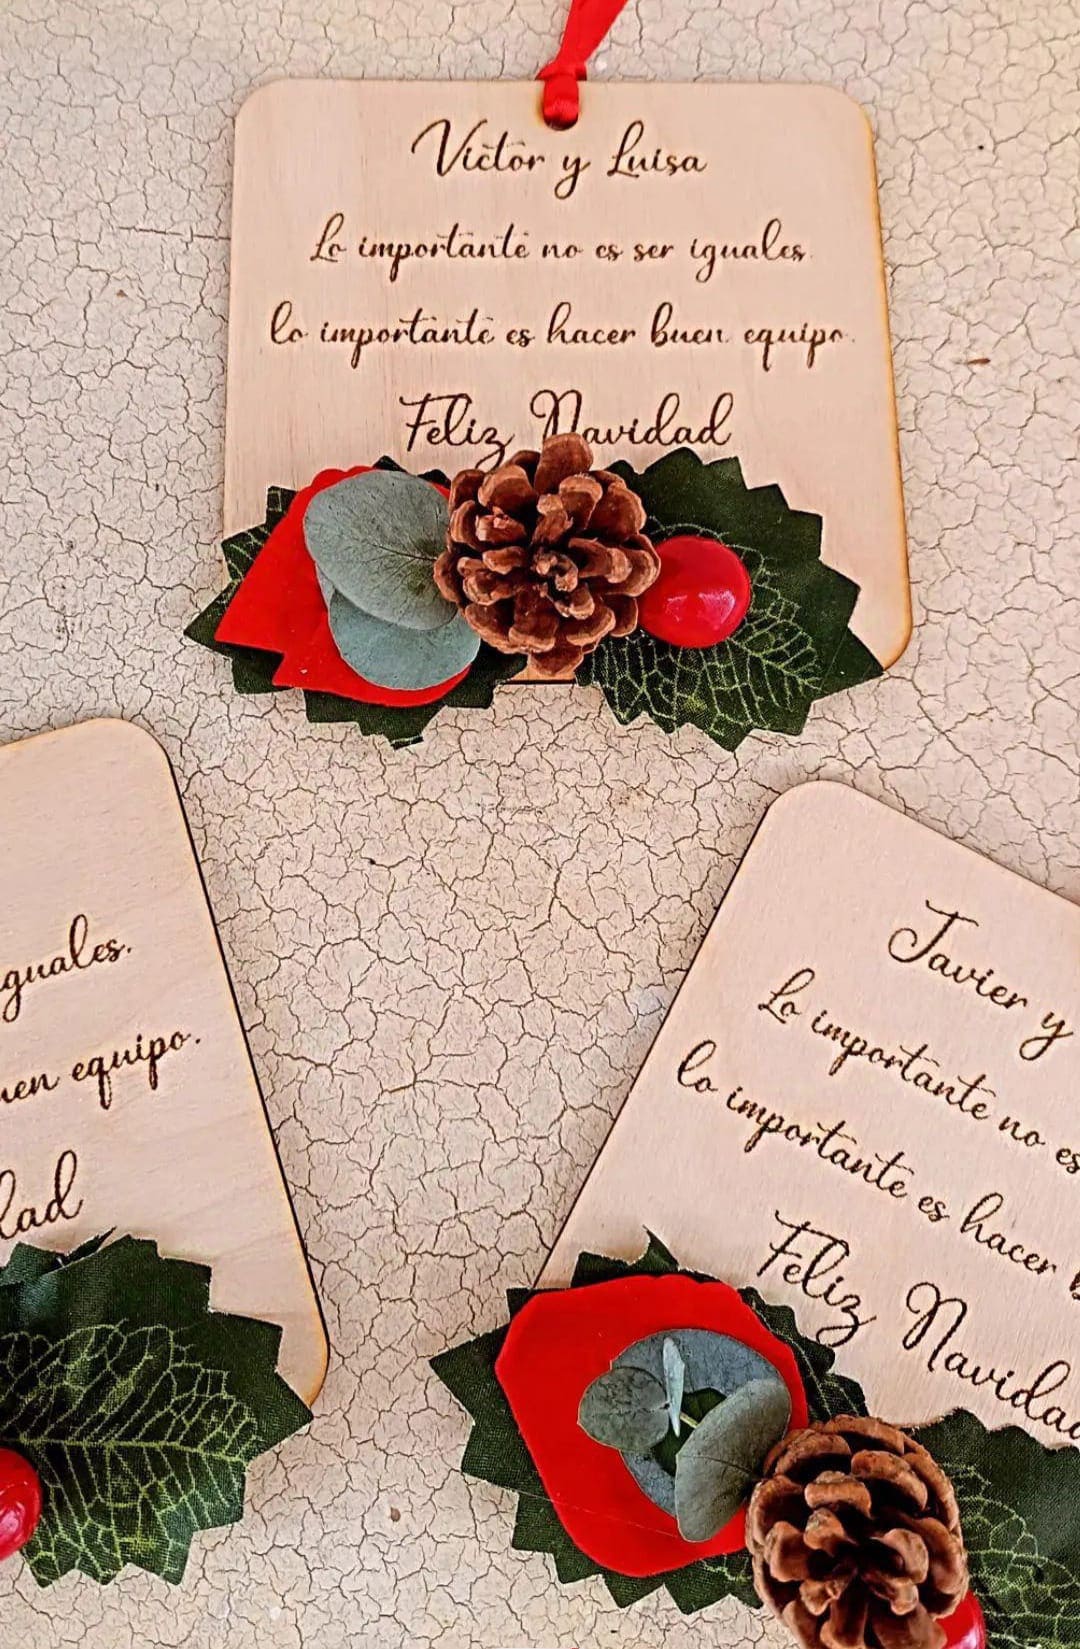 Victor y Luisa
Lo importante no es ser iguales.
lo importante es hacer buen equipo.
Feliz Navidad
iguales.
equipo.
Javier y
Lo importante no es
lo importante es hacer
Feliz Navidad